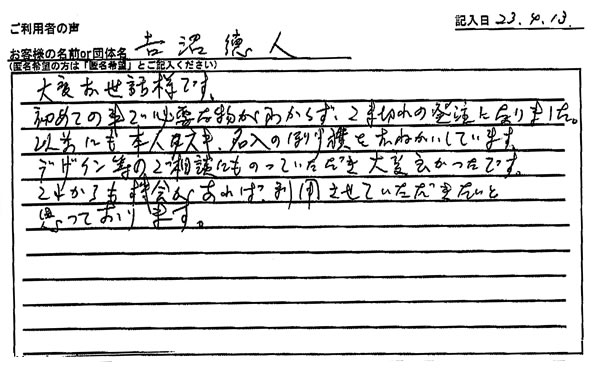 ご利用者の声
記入日 23.4.13.
お客様の名前or団体名 吉沼徳人
(匿名希望の方は「匿名希望」とご記入ください)
大変お世話様です。
初めての事で必要な物がわからず、コマ切れの発注になりました。
以前にも本人たすき、名入のぼり旗をおねがいしています。
デザイン等のご相談にものっていただき大変良かったです。
これからも機会があれば、利用させていただきたいと
思っております。